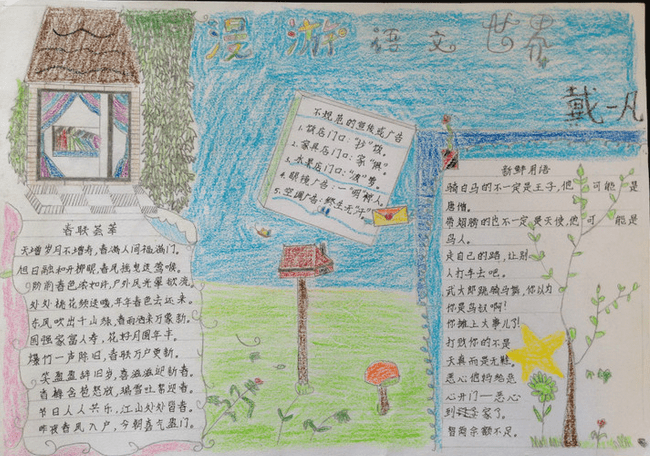 漫游语文世界
戴一凡
不规范的宣传或广告
1.饭店门口:"抄"饭。
2.家具店门口:家"俱"。
3.水果店门口:"波"萝。
4.眼镜广告:一"明"惊人。
5.空调广告:终生无"汗"
春联荟萃
天增岁月人增寿,春满人间福满门。
旭日融和开柳眼,春风摇曳送莺喉。
阶前春色浓如许,户外风光翠欲流。
处处桃花频送暖,年年春色去还来。
东风吹出千山绿,春雨洒来万象新。
国强家富人寿,花好月圆年丰。
爆竹一声除旧,春联万户更新。
笑盈盈辞旧岁,喜滋滋迎新春。
春梅含苞怒放,瑞雪吐絮迎春。
节日人人共乐,江山处处皆春。
昨夜春风入户,今朝喜气盈门。
新鲜用语
骑白马的不一定是王子,他可能是
唐僧。
带翅膀的也不一定是天使,他可能是
鸟人。
走自己的路,让别
人打车去吧。
武大郎跳骑马舞,你以为
你是鸟叔啊!
你摊上大事儿了!
打败你的不是
天真而是无鞋。
恶心他妈给恶
心开门——恶心
到家了。
智商余额不足。